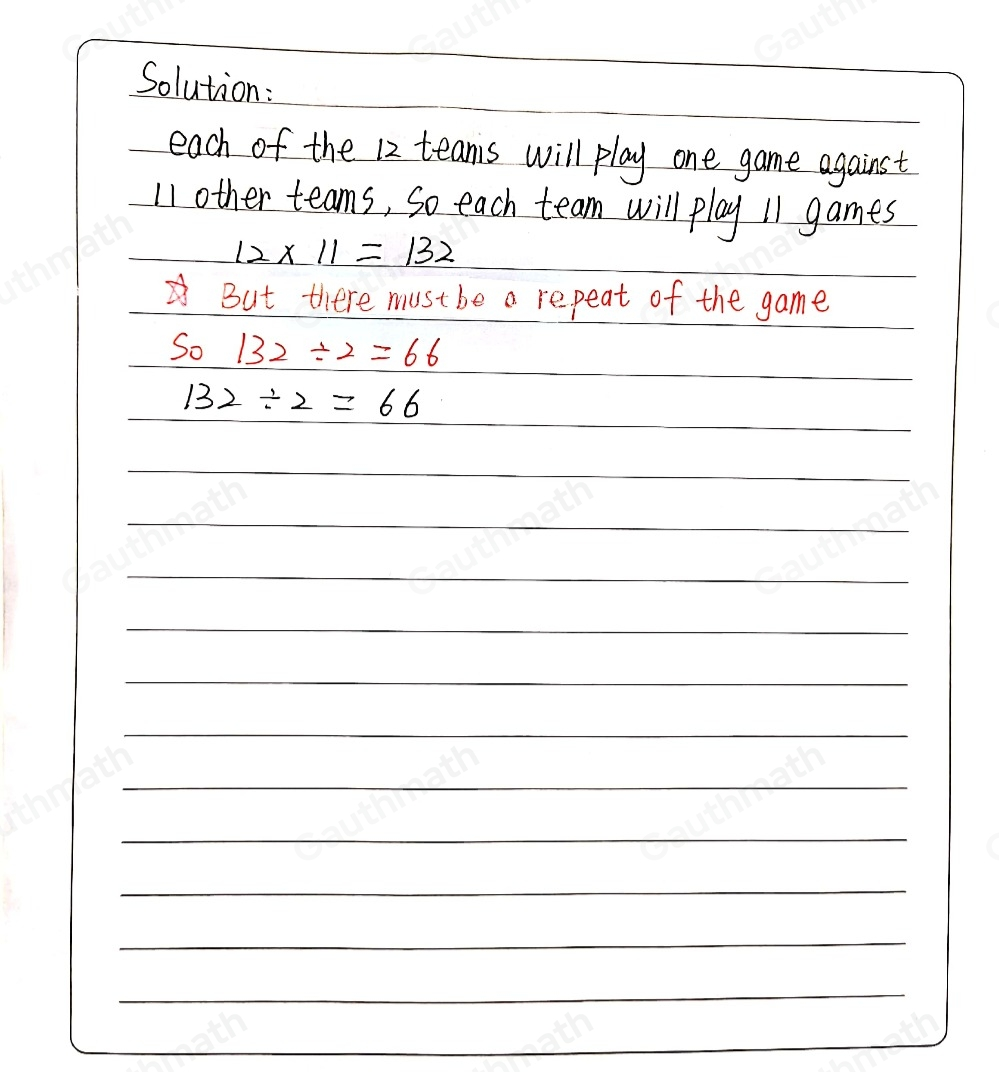 Solution:
each of the 12 teams will play one game against
11 other teams, So each team will play 11 games
12 x 11 = 132
☆ But there must be a repeat of the game
So 132 ÷ 2 = 66
132 ÷ 2 = 66
Gauthmath